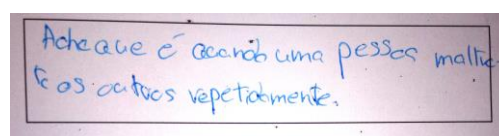 Acho que é quando uma pessoa maltra-
ta os outros repetidamente.